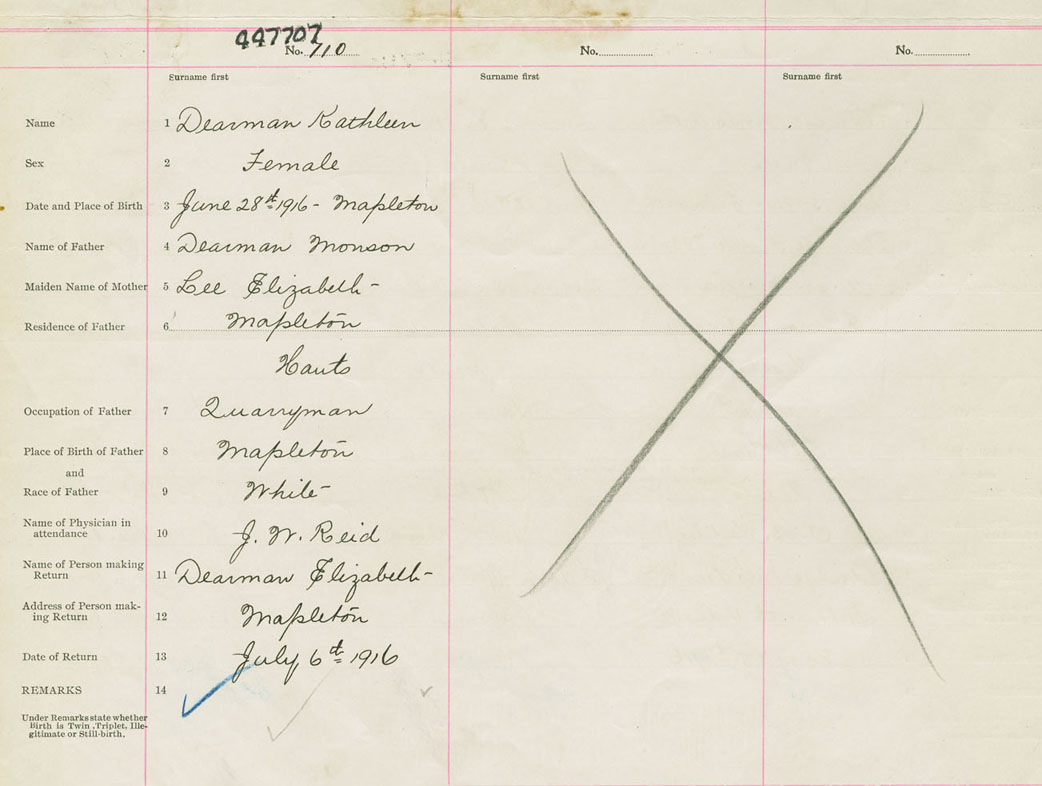 447707
No. 710 No. No.
Surname first Surname first Surname first
Name 1 Dearman Kathleen
Sex 2 Female
Date and Place of Birth 3 June 28th 1916 - Mapleton
Name of Father 4 Dearman Monson
Maiden Name of Mother 5 Lee Elizabeth -
Residence of Father 6 Mapleton
Hants
Occupation of Father 7 Quarryman
Place of Birth of Father 8 Mapleton
and
Race of Father 9 White -
Name of Physician in
attendance 10 J. W. Reid
Name of Person making
Return 11 Dearman Elizabeth -
Address of Person mak-
ing Return 12 Mapleton
Date of Return 13 July, 6th 1916
REMARKS 14
Under Remarks state whether
Birth is Twin, Triplet, Ille-
gitimate or Still-birth.